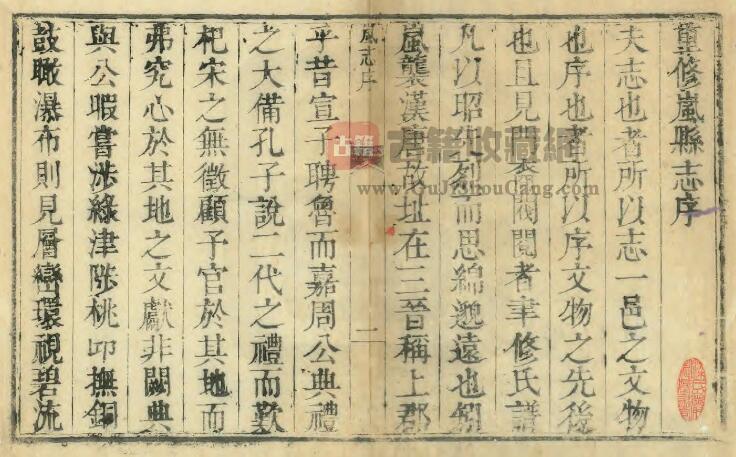 重修嵐縣志序
夫志也者所以志一邑之文物
也序也者所以序文物之先後
也且見閥閱者聿修氏譜
凡以昭先烈而思綿邈遠也矧
嵐襲漢唐故址在三晉稱上郡
嵐志序 一
乎昔宣子聘魯而嘉周公典禮
之大備孔子說二代之禮而歎
杞宋之無徵顧予官於其地而
弗究心於其地之文獻非闕典
與公暇嘗涉綠津陟桃撫銅
鼓瞰瀑布則見層巒環視碧流
古籍
古籍收藏網
www.GuJiShouCang.com